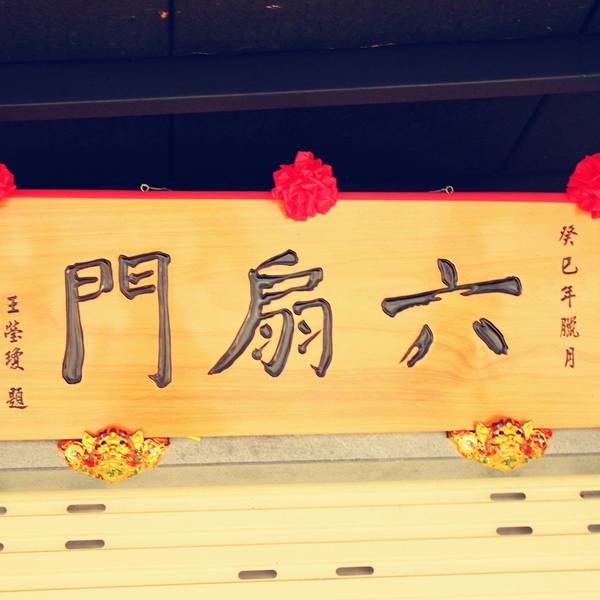 癸巳年臘月
六扇門
王瑩瓊 題